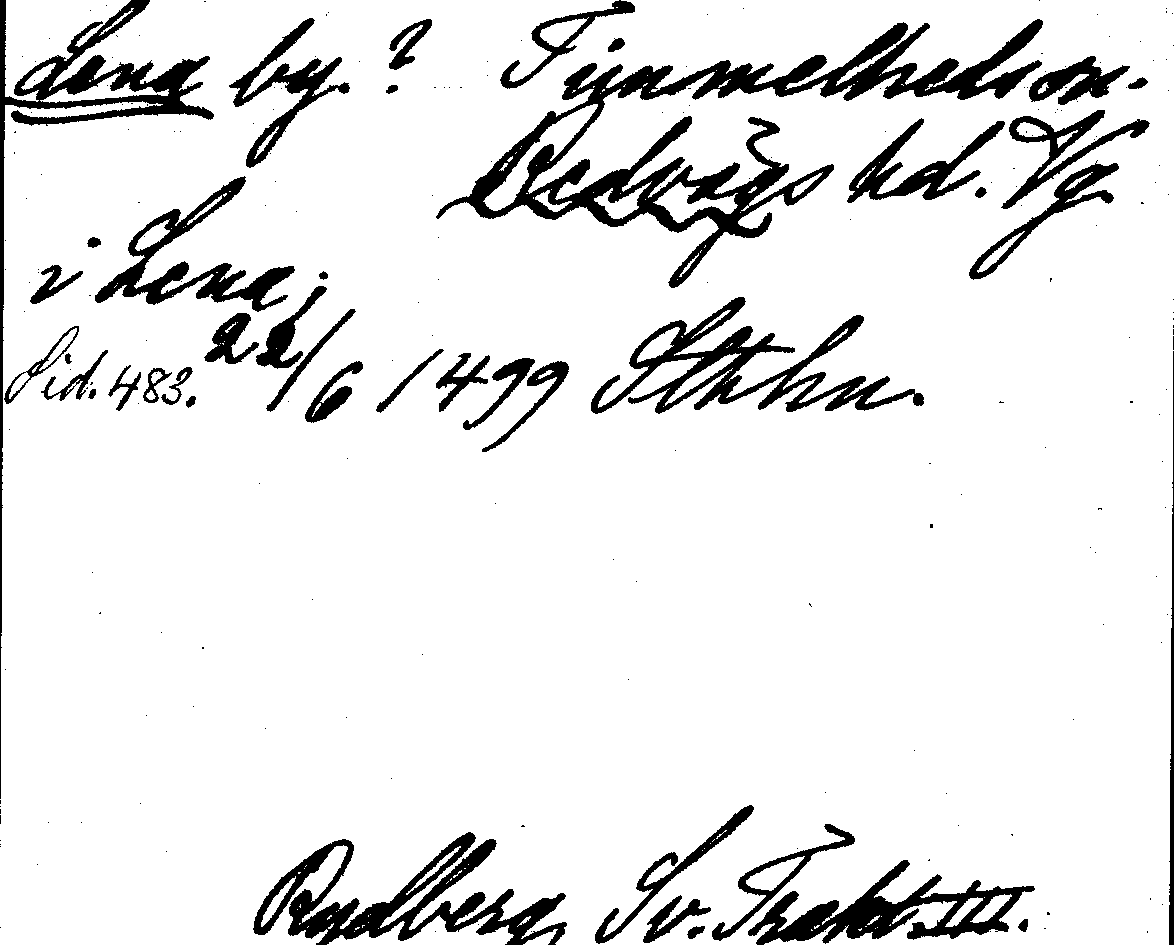 Lena by.? Timmelheds sn.
Redvägs hd. Vg.
i Lena;
Sid. 483. 22/6 1499 Sthlm.
Rydberg, Sv. Trakt. III.